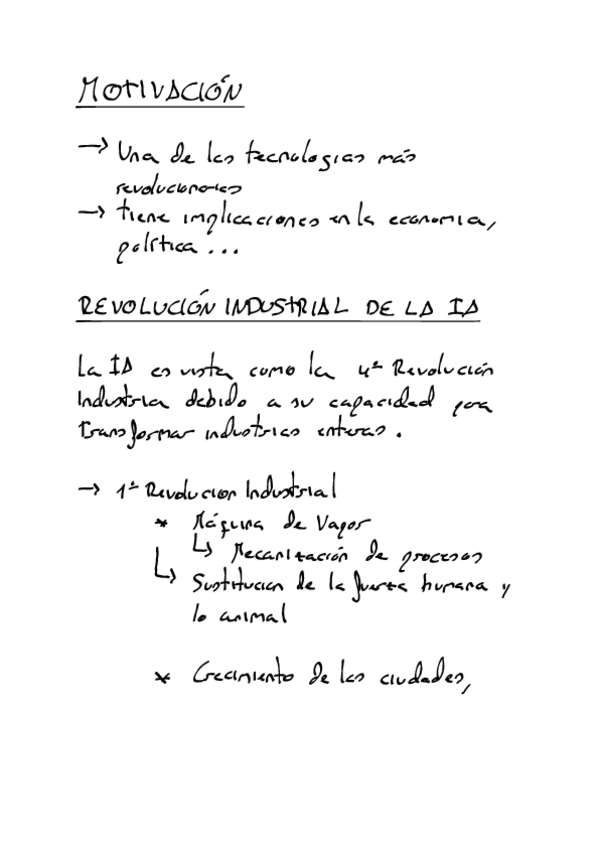 MOTIVACIÓN
→ Una de las tecnologias más
revolucionarias
→ tiene implicaciones en la economia,
política ...
REVOLUCIÓN INDUSTRIAL DE LA IA
La IA es vista como la 4ª Revolución
Industria debido a su capacidad para
transformar industrias enteras.
→ 1ª Revolucion Industrial
* Máquina de Vapor
↳ Mecanización de procesos
↳ Sustitucion de la fuerza humana y
lo animal
* Crecimiento de las ciudades,